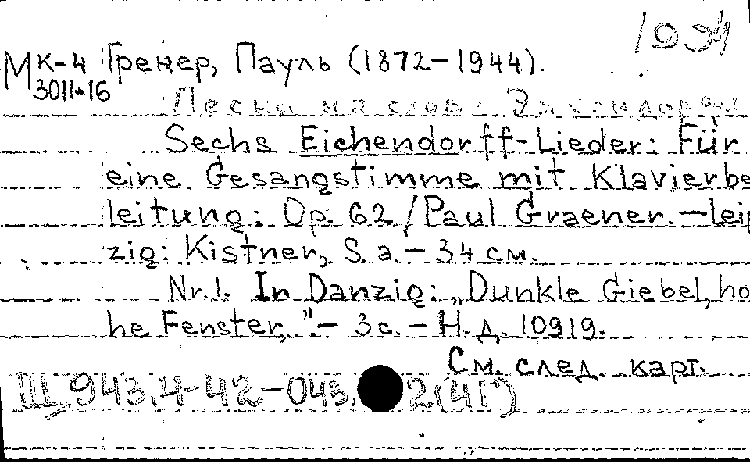 1094
МК-4 Гренер, Пауль (1872–1944).
3011-16
Песни на слова Эйхендорфа
Sechs Eichendorff-Lieder: Für
eine Gesangstimme mit Klavierbe
leitung: Op. 62 / Paul Graener. — Leip
zig: Kistner, S. a. — 34 см.
Nr. 1. In Danzig: „Dunkle Giebel, ho
he Fenster,“ — 3 с. — Н. д. 10919.
См. след. карт.
Ш 943.4-42-043. 2(41)